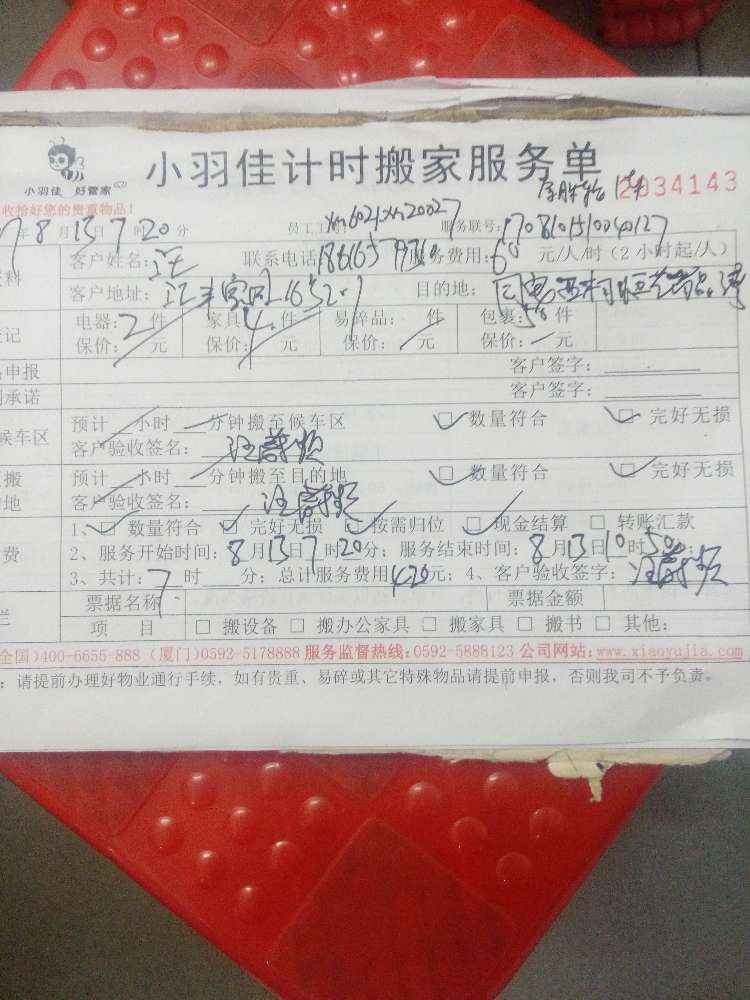 小羽佳 好管家
小羽佳计时搬家服务单
2034143
收拾好您的贵重物品!
7年8月13日7时20分 员工工 服务联号:
客户姓名:汪 联系电话 服务费用:60元/人/时(2小时起/人)
客户地址: 目的地:
电器:2件 家具:4件 易碎品: 件 包裹: 件
保价: 元 保价: 元 保价: 元 保价: 元
申报 客户签字:
承诺 客户签字:
候车区 预计 小时 分钟搬至候车区 □数量符合 □完好无损
客户验收签名:
搬 预计 小时 分钟搬至目的地 □数量符合 □完好无损
地 客户验收签名:
1、□数量符合 □完好无损 □按需归位 □现金结算 □转账汇款
费 2、服务开始时间:8月13日7时20分;服务结束时间:8月13日10时50分;
3、共计:7时 分;总计服务费用420元;4、客户验收签字:
票据名称 票据金额
栏 项 目 □搬设备 □搬办公家具 □搬家具 □搬书 □其他:
全国)400-6655-888 (厦门)0592-5178888 服务监督热线:0592-5888123 公司网站:www.xiaoyujia.com
:请提前办理好物业通行手续,如有贵重、易碎或其它特殊物品请提前申报,否则我司不予负责。